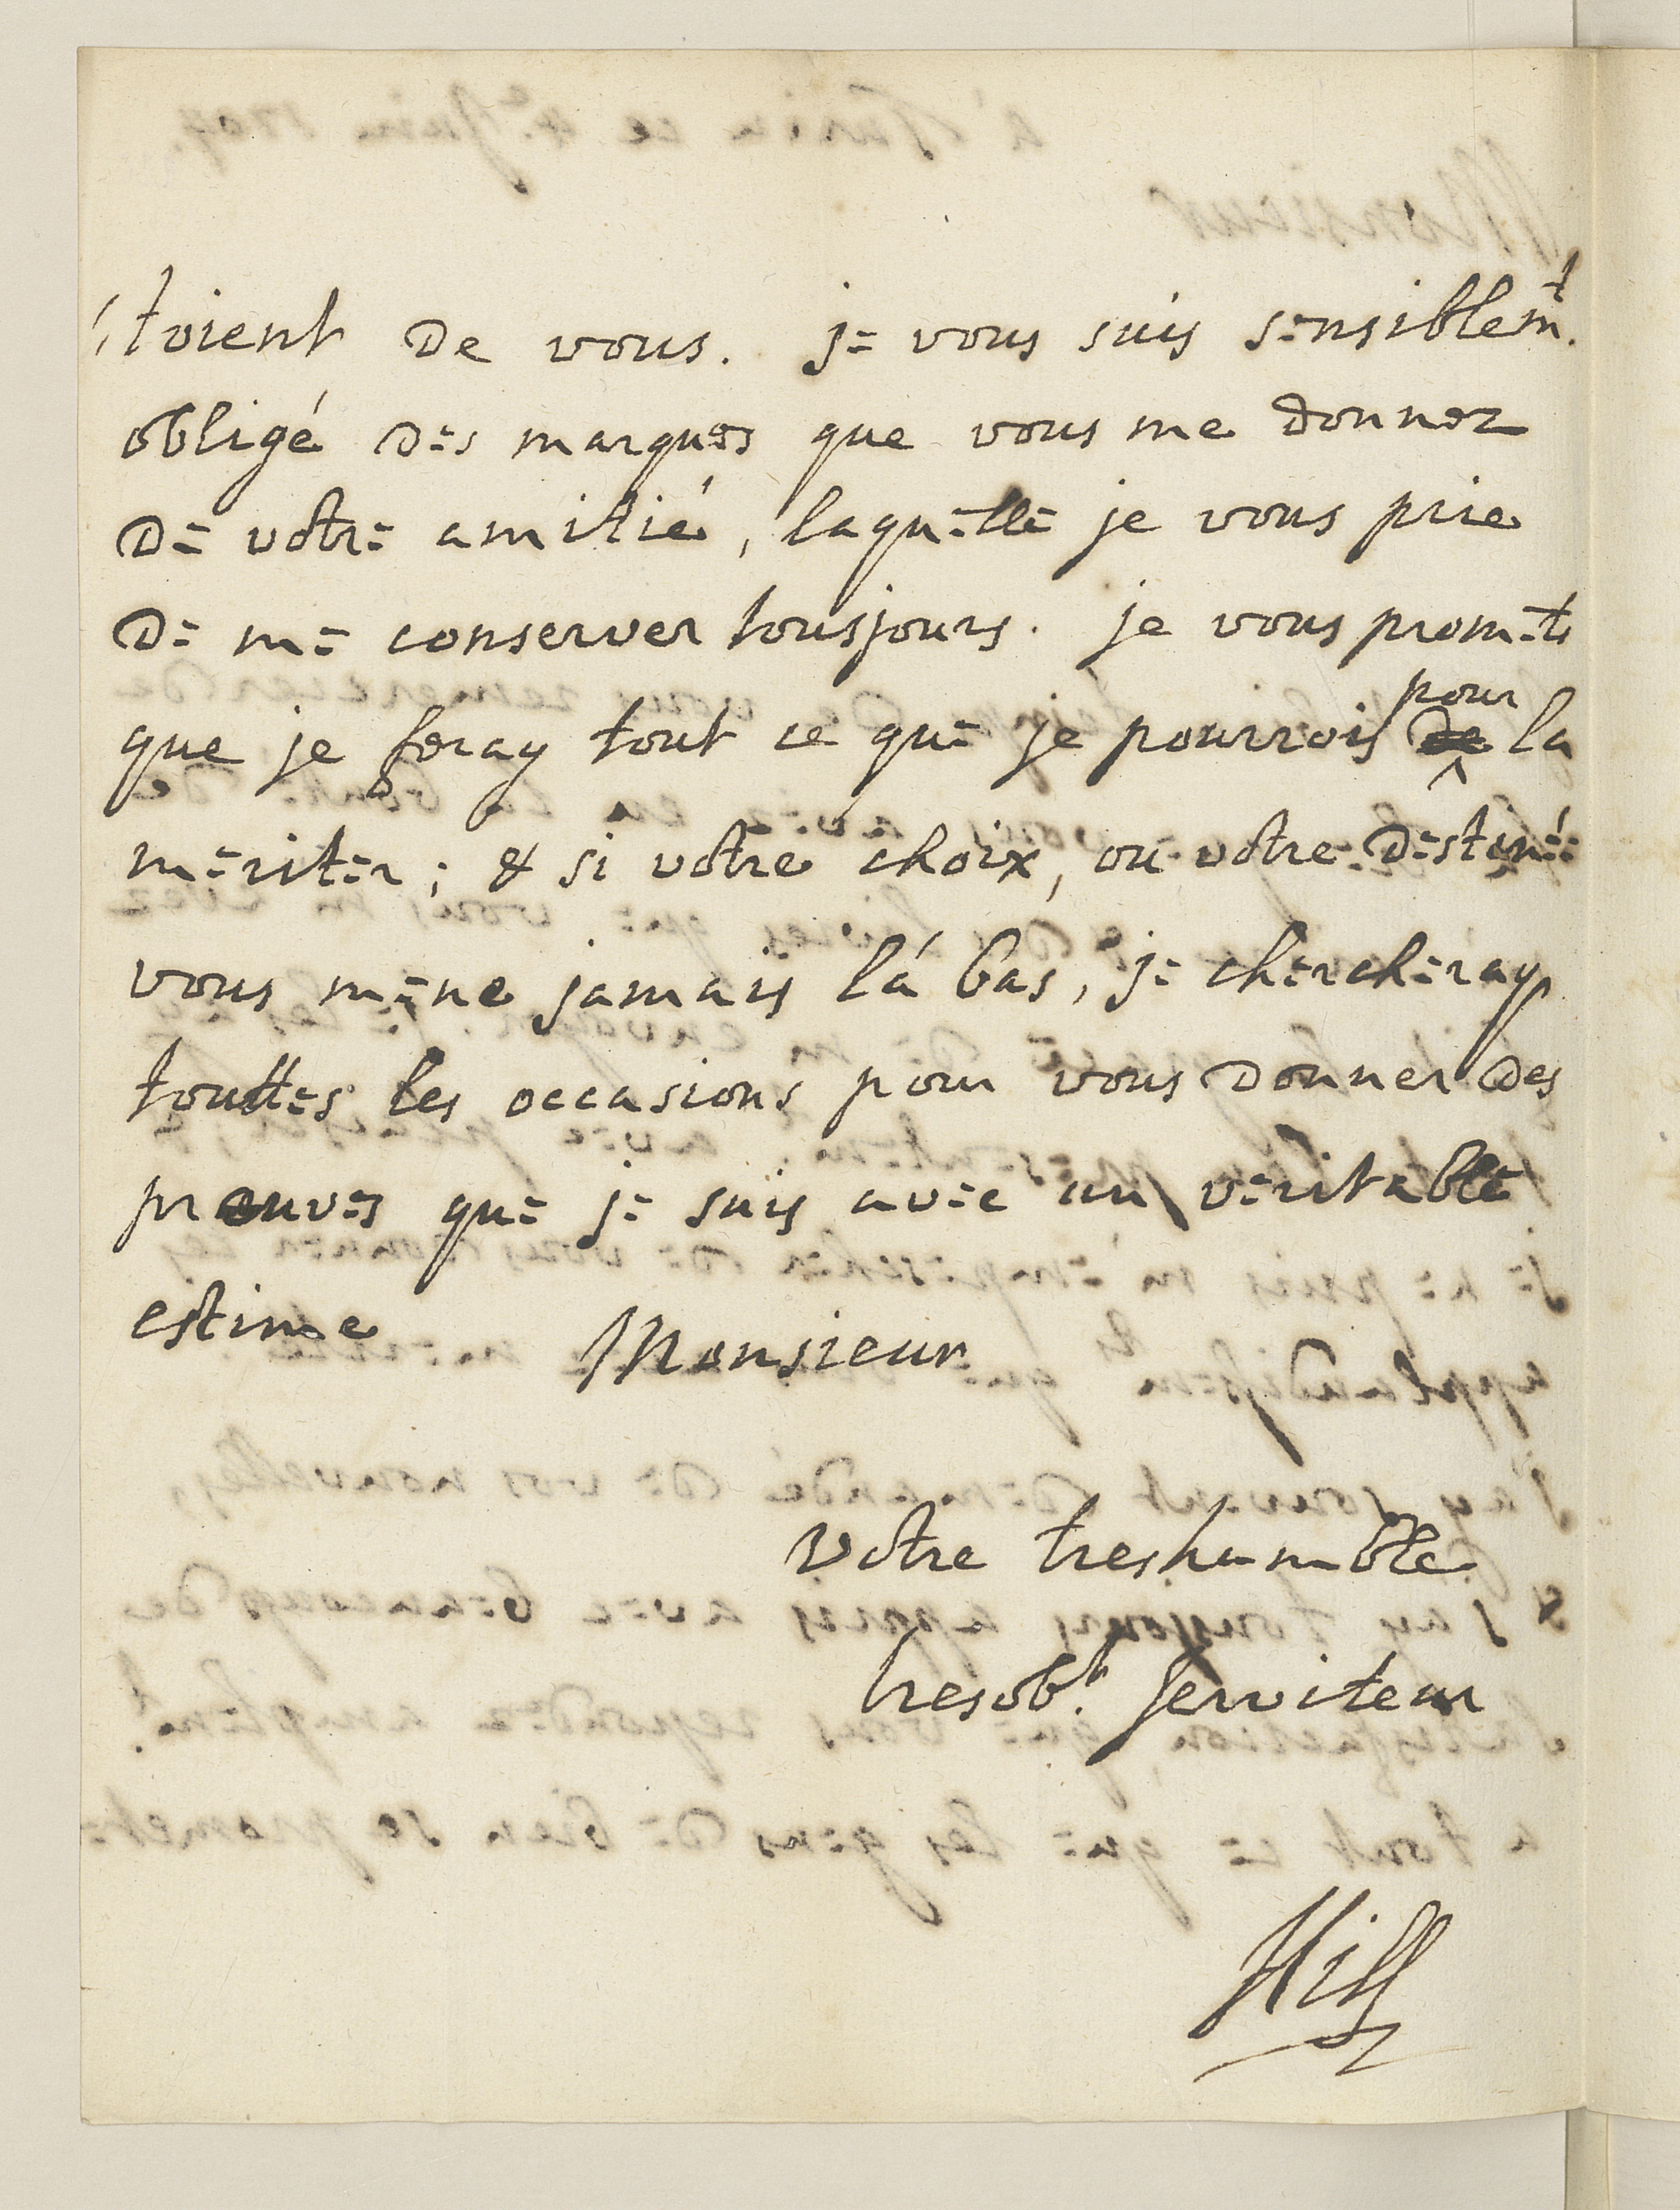 étoient de vous. je vous suis sensiblemt.
obligé des marques que vous me donnez
de votre amitié, laquelle je vous prie
de me conserver tousjours. je vous promets
que je feray tout ce que je pourrois de pour la
meriter; & si votre choix, ou votre destinée
vous mene jamais lá bas, je chercheray
touttes les occasions pour vous donner des
preuves que je suis avec un veritable
estime Monsieur
Votre treshumble
tresobt. serviteur
Hill